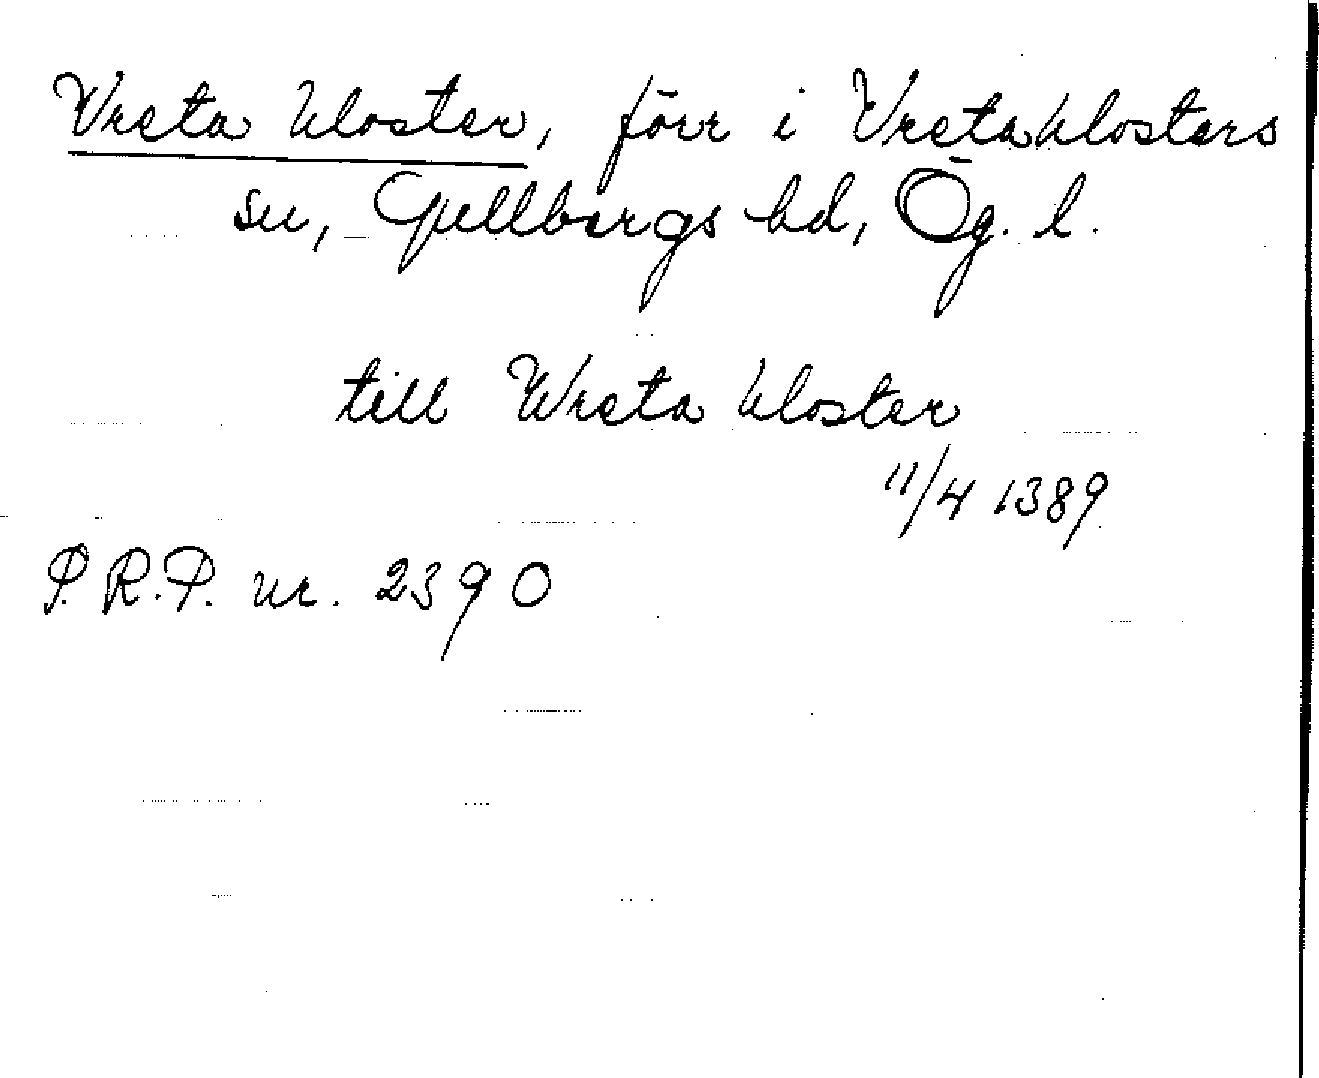 Vreta kloster, förr i Vreta klosters
sn, Gullbergs hd, Ög. l.
till Wreta kloster
11/4 1389
P.R.P. nr. 2390